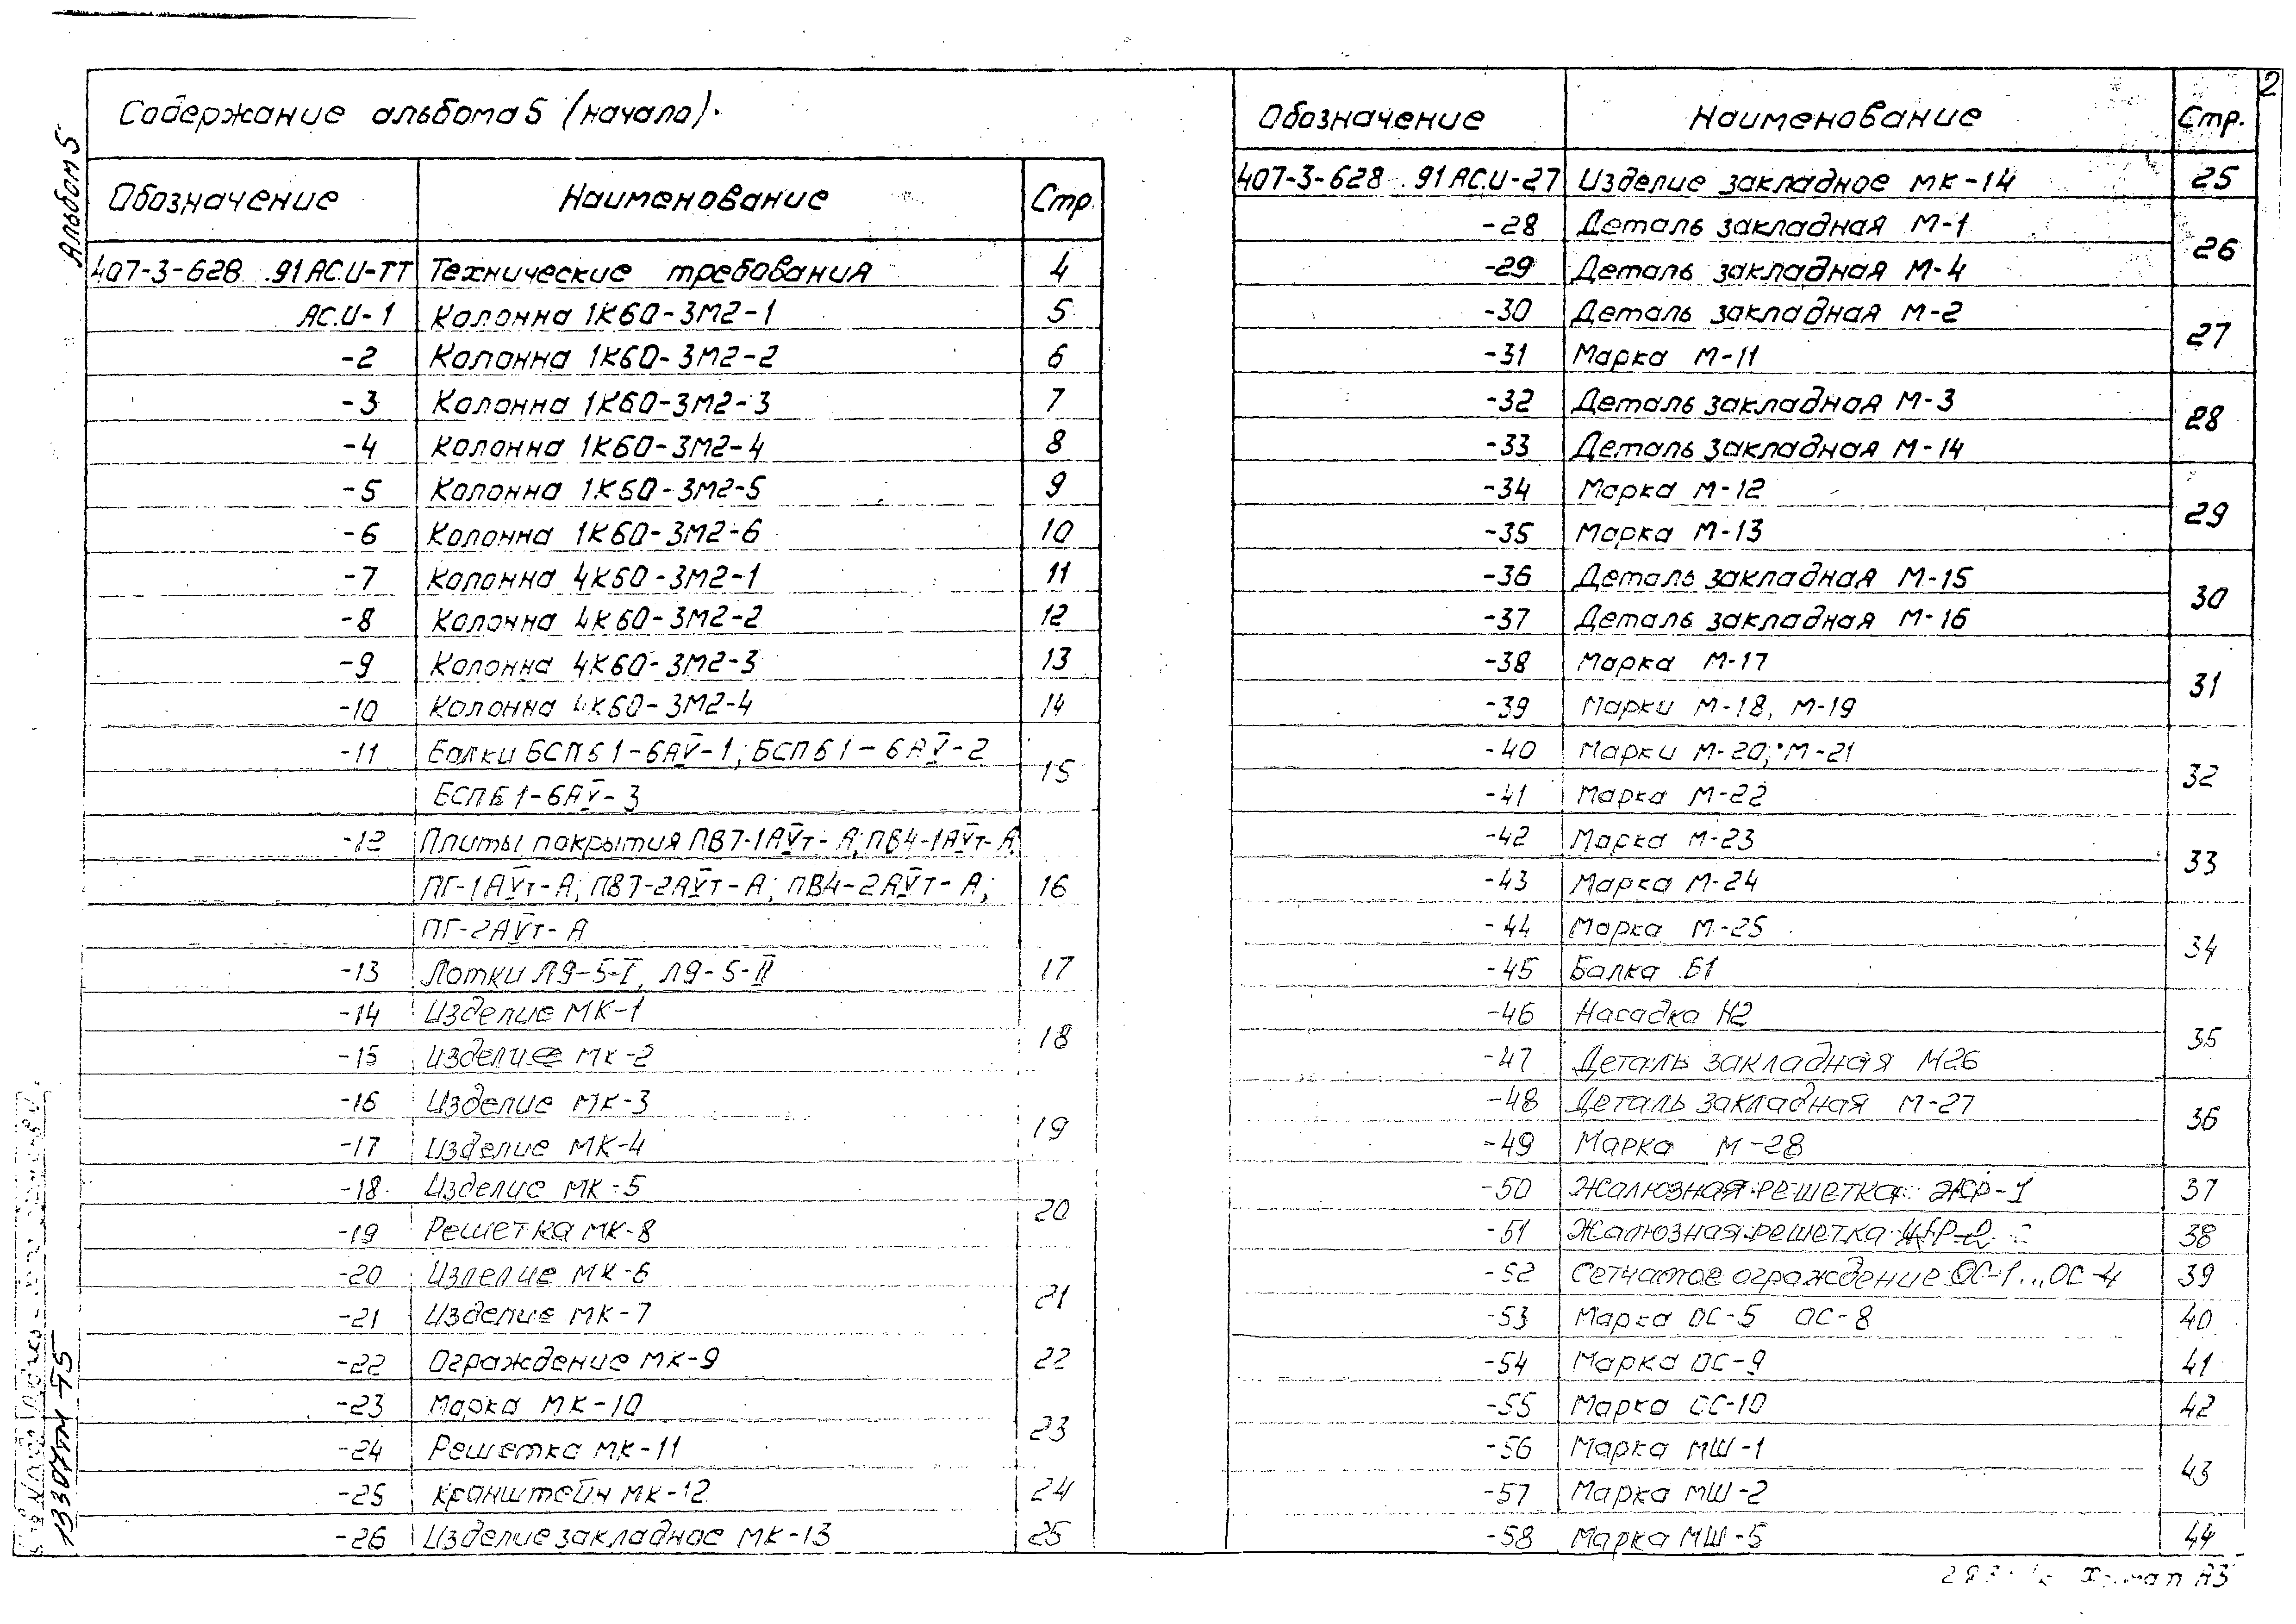 2
Альбом 5
Содержание альбома 5 (начало).
Обозначение Наименование Стр.
407-3-628 .91 АС.И-ТТ Технические требования 4
АС.И-1 Колонна 1К60-3М2-1 5
-2 Колонна 1К60-3М2-2 6
-3 Колонна 1К60-3М2-3 7
-4 Колонна 1К60-3М2-4 8
-5 Колонна 1К60-3М2-5 9
-6 Колонна 1К60-3М2-6 10
-7 Колонна 4К60-3М2-1 11
-8 Колонна 4К60-3М2-2 12
-9 Колонна 4К60-3М2-3 13
-10 Колонна 4К60-3М2-4 14
-11 Балки БСПБ1-6АV-1; БСПБ1-6АV-2
БСПБ1-6АV-3 15
-12 Плиты покрытия ПВ7-1АVт-А; ПВ4-1АVт-А
ПГ-1АVт-А; ПВ7-2АVт-А; ПВ4-2АVт-А; 16
ПГ-2АVт-А
-13 Лотки Л9-5-I, Л9-5-II 17
-14 Изделие МК-1 18
-15 Изделие МК-2
-16 Изделие МК-3 19
-17 Изделие МК-4
-18 Изделие МК-5 20
-19 Решетка МК-8
-20 Изделие МК-6 21
-21 Изделие МК-7
-22 Ограждение МК-9 22
-23 Марка МК-10 23
-24 Решетка МК-11
-25 Кранштейн МК-12 24
-26 Изделие закладное МК-13 25
13307тм-Т5
Обозначение Наименование Стр.
407-3-628 .91 АС.И-27 Изделие закладное МК-14 25
-28 Деталь закладная М-1 26
-29 Деталь закладная М-4
-30 Деталь закладная М-2 27
-31 Марка М-11
-32 Деталь закладная М-3 28
-33 Деталь закладная М-14
-34 Марка М-12 29
-35 Марка М-13
-36 Деталь закладная М-15 30
-37 Деталь закладная М-16
-38 Марка М-17 31
-39 Марки М-18, М-19
-40 Марки М-20; М-21 32
-41 Марка М-22
-42 Марка М-23 33
-43 Марка М-24
-44 Марка М-25 34
-45 Балка Б1
-46 Насадка Н2 35
-47 Деталь закладная М26
-48 Деталь закладная М-27 36
-49 Марка М-28
-50 Жалюзная решетка ЖР-1 37
-51 Жалюзная решетка ЖР-2 38
-52 Сетчатое ограждение ОС-1...ОС-4 39
-53 Марка ОС-5 ОС-8 40
-54 Марка ОС-9 41
-55 Марка ОС-10 42
-56 Марка МШ-1 43
-57 Марка МШ-2
-58 Марка МШ-5 44
А3